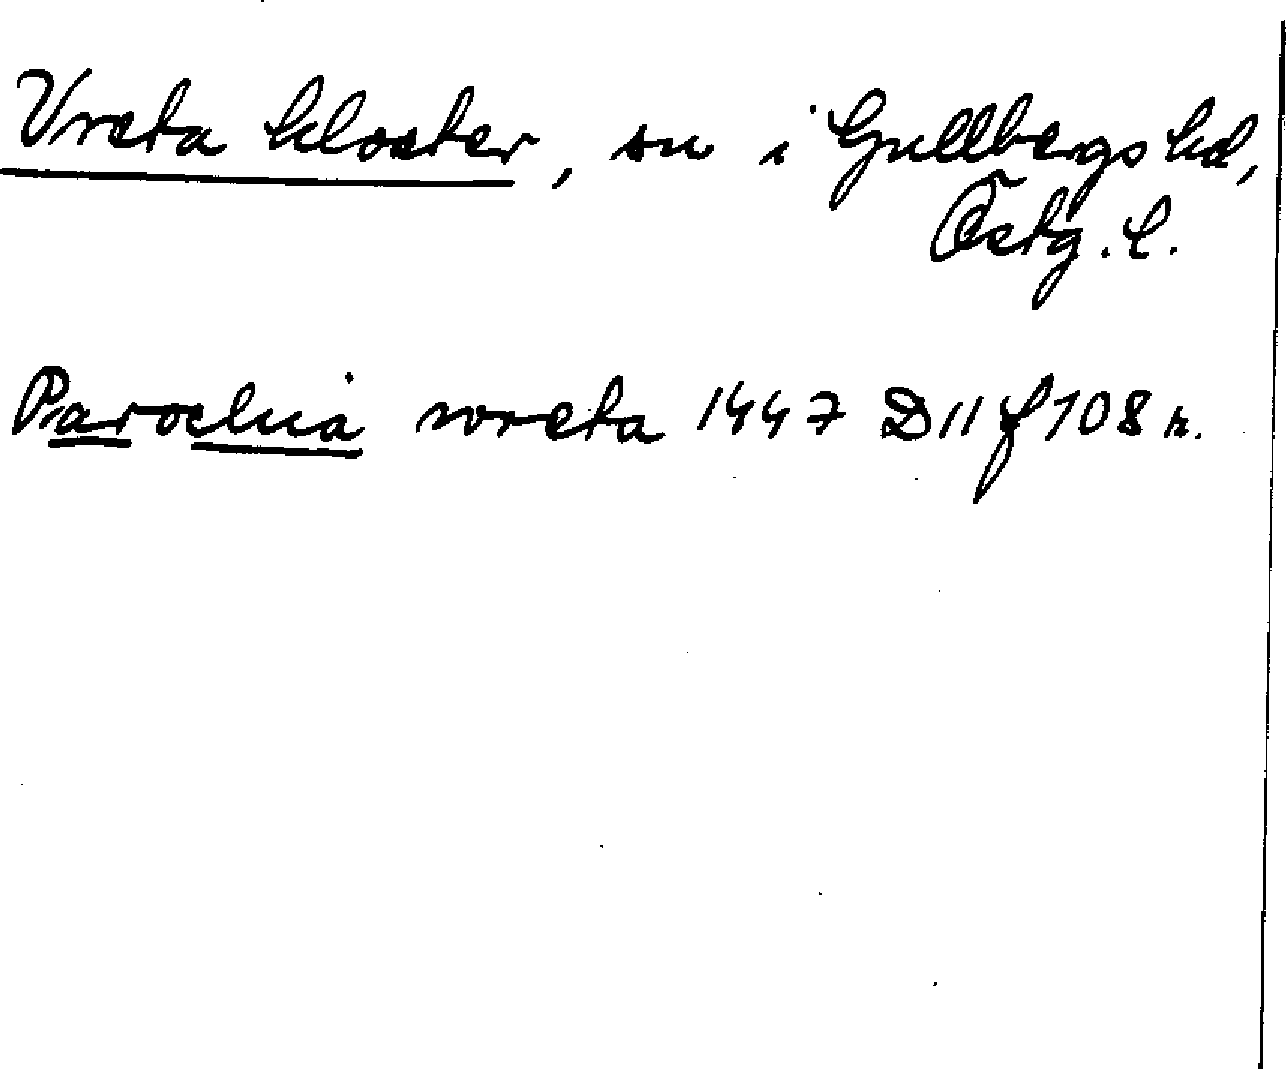 Vreta kloster, sn i Gullbergs hd,
Östg. l.
Parochia wreta 1447 D 11 f 108 r.